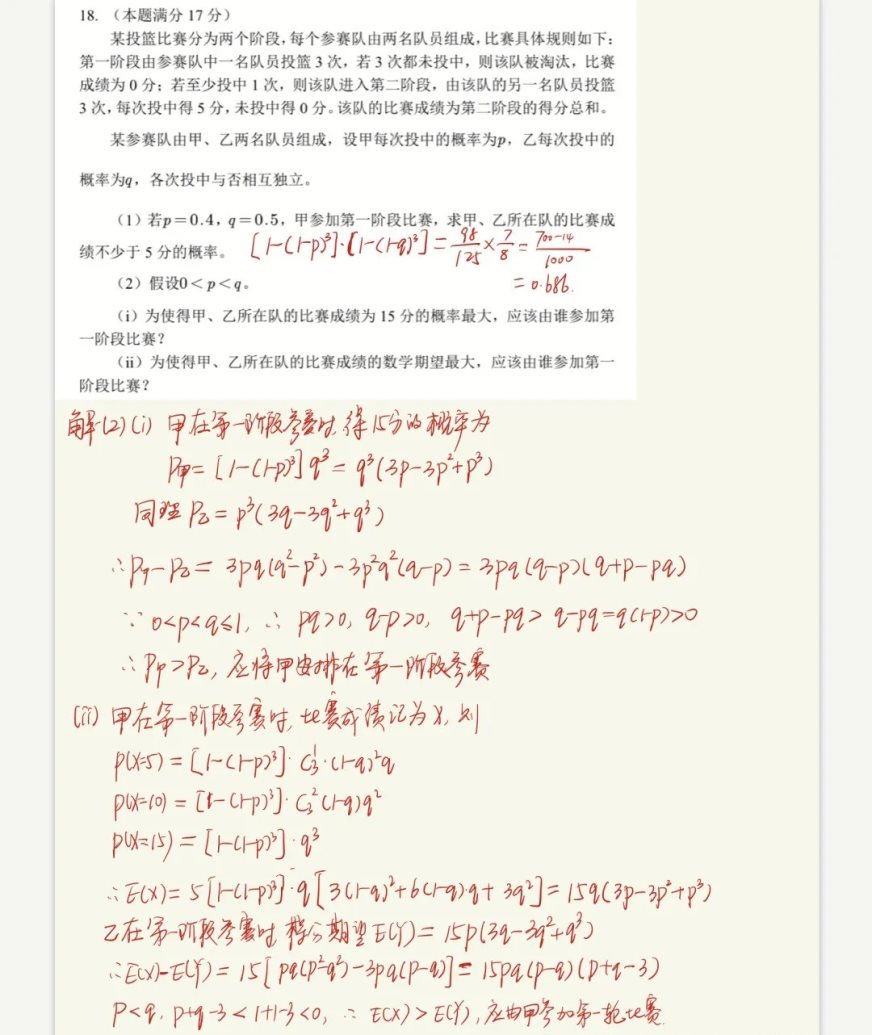 18. （本题满分 17 分）
某投篮比赛分为两个阶段，每个参赛队由两名队员组成，比赛具体规则如下：
第一阶段由参赛队中一名队员投篮 3 次，若 3 次都未投中，则该队被淘汰，比赛
成绩为 0 分；若至少投中 1 次，则该队进入第二阶段，由该队的另一名队员投篮
3 次，每次投中得 5 分，未投中得 0 分。该队的比赛成绩为第二阶段的得分总和。
某参赛队由甲、乙两名队员组成，设甲每次投中的概率为p，乙每次投中的
概率为q，各次投中与否相互独立。
（1）若p＝0.4，q＝0.5，甲参加第一阶段比赛，求甲、乙所在队的比赛成
绩不少于 5 分的概率。 [1-(1-p)³]·[1-(1-q)³]=98/125×7/8=700-14/1000
（2）假设0＜p＜q。 =0.686.
（i）为使得甲、乙所在队的比赛成绩为 15 分的概率最大，应该由谁参加第
一阶段比赛？
（ii）为使得甲、乙所在队的比赛成绩的数学期望最大，应该由谁参加第一
阶段比赛？
解(2)(i) 甲在第一阶段参赛时,得15分的概率为
P甲=[1-(1-p)³]q³=q³(3p-3p²+p³)
同理P乙=p³(3q-3q²+q³)
∴P甲-P乙=3pq(q²-p²)-3p²q²(q-p)=3pq(q-p)(q+p-pq)
∵0<p<q≤1,∴pq>0,q-p>0,q+p-pq>q-pq=q(1-p)>0
∴P甲>P乙,应将甲安排在第一阶段参赛
(ii) 甲在第一阶段参赛时,比赛成绩记为X,则
P(X=5)=[1-(1-p)³]·C₃¹·(1-q)²q
P(X=10)=[1-(1-p)³]·C₃²(1-q)q²
P(X=15)=[1-(1-p)³]·q³
∴E(X)=5[1-(1-p)³]·q[3(1-q)²+6(1-q)·q+3q²]=15q(3p-3p²+p³)
乙在第一阶段参赛时 得分期望E(Y)=15p(3q-3q²+q³)
∴E(X)-E(Y)=15[pq(p²-q²)-3pq(p-q)]=15pq(p-q)(p+q-3)
p<q,p+q-3<1+1-3<0,∴E(X)>E(Y),应由甲参加第一轮比赛